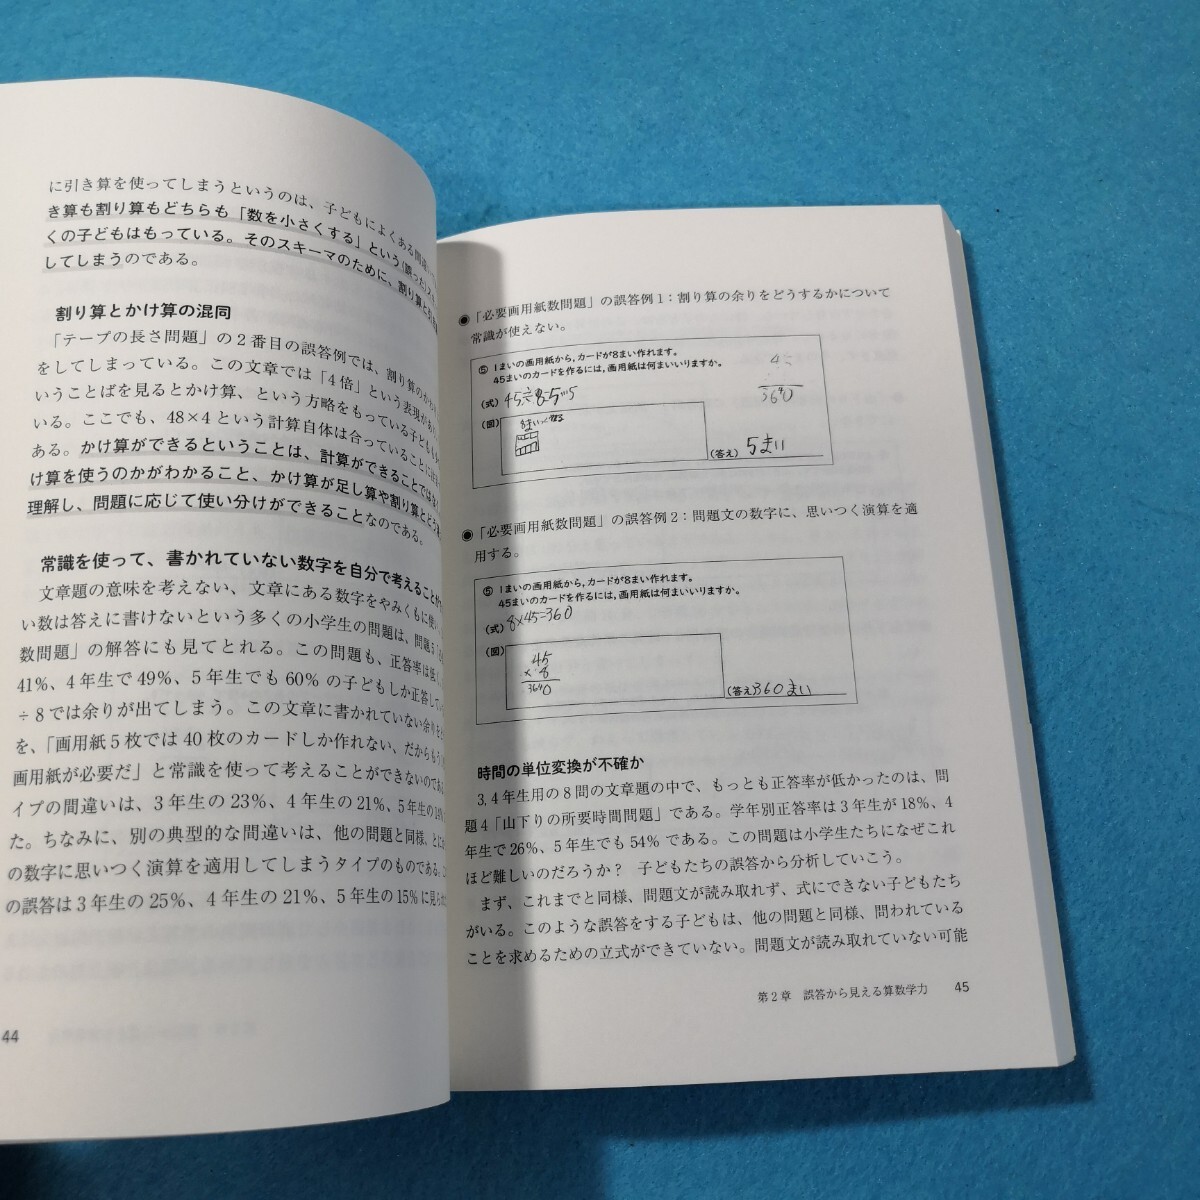 に引き算を使ってしまうというのは、子どもによくある間違い
き算も割り算もどちらも「数を小さくする」という(誤った)ス
くの子どもはもっている。そのスキーマのために、割り算と引き
してしまうのである。
割り算とかけ算の混同
「テープの長さ問題」の2番目の誤答例では、割り算のかわり
をしてしまっている。この文章では「4倍」という表現があり、
いうことばを見るとかけ算、という方略をもっている子ども
いる。ここでも、48×4という計算自体は合っていることに
ある。かけ算ができるということは、計算ができることでは
け算を使うのかがわかること、かけ算が足し算や割り算とどう
理解し、問題に応じて使い分けができることなのである。
常識を使って、書かれていない数字を自分で考えること
文章題の意味を考えない、文章にある数字をやみくもに使い、
い数は答えに書けないという多くの小学生の問題は、問題5
数問題」の解答にも見てとれる。この問題も、正答率は低く
41%、4年生で49%、5年生でも60%の子どもしか正答して
÷8では余りが出てしまう。この文章に書かれていない余りを
を、「画用紙5枚では40枚のカードしか作れない、だからもう
画用紙が必要だ」と常識を使って考えることができないのであ
イプの間違いは、3年生の23%、4年生の21%、5年生の
た。ちなみに、別の典型的な間違いは、他の問題と同様、とに
の数字に思いつく演算を適用してしまうタイプのものである。
の誤答は3年生の25%、4年生の21%、5年生の15%に見ら
44
◉「必要画用紙数問題」の誤答例1：割り算の余りをどうするかについて
常識が使えない。
⑤ 1まいの画用紙から,カードが8まい作れます。
45まいのカードを作るには,画用紙は何まいいりますか。
(式) 45÷8=5…5
45
3640
(図)
(答え) 5まい
◉「必要画用紙数問題」の誤答例2：問題文の数字に、思いつく演算を適
用する。
⑤ 1まいの画用紙から,カードが8まい作れます。
45まいのカードを作るには,画用紙は何まいいりますか。
(式) 8×45=360
(図)
45
×8
3640
(答え) 360まい
時間の単位変換が不確か
3,4年生用の8問の文章題の中で、もっとも正答率が低かったのは、問
題4「山下りの所要時間問題」である。学年別正答率は3年生が18%、4
年生で26%、5年生でも54%である。この問題は小学生たちになぜこれ
ほど難しいのだろうか？ 子どもたちの誤答から分析していこう。
まず、これまでと同様、問題文が読み取れず、式にできない子どもたち
がいる。このような誤答をする子どもは、他の問題と同様、問われている
ことを求めるための立式ができていない。問題文が読み取れていない可能
第2章 誤答から見える算数学力 45